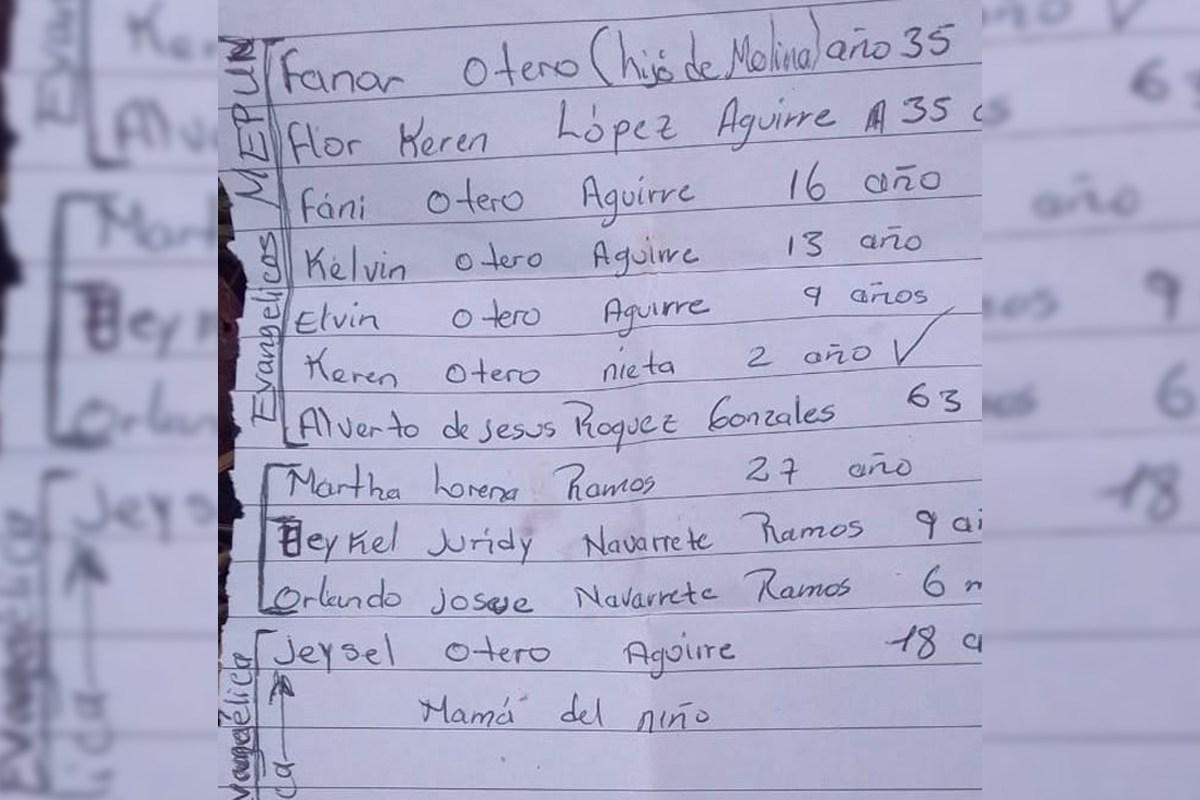 Fanor Otero (hijo de Molina) año 35
Flor Keren López Aguirre 35
Fáni Otero Aguirre 16 año
Kelvin Otero Aguirre 13 año
Elvin Otero Aguirre 9 años
Keren Otero nieta 2 año ✓
Alverto de Jesus Roquez Gonzales 63
Martha Lorena Ramos 27 año
Deykel Juridy Navarrete Ramos 9
Orlando Josue Navarrete Ramos 6
Jeysel Otero Aguirre 18
Mamá del niño
Evangelicos MEPUN